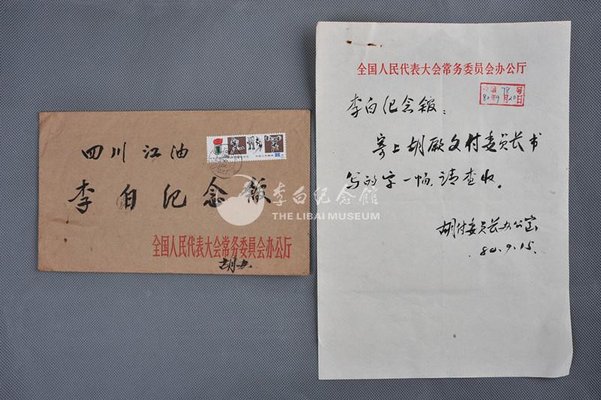 四川 江油
李白纪念馆
全国人民代表大会常务委员会办公厅
李白纪念馆
THE LIBAI MUSEUM
全国人民代表大会常务委员会办公厅
李白纪念馆:
寄上胡厥文付委员长书
写的字一幅,请查收。
胡付委员长办公室
84.9.15